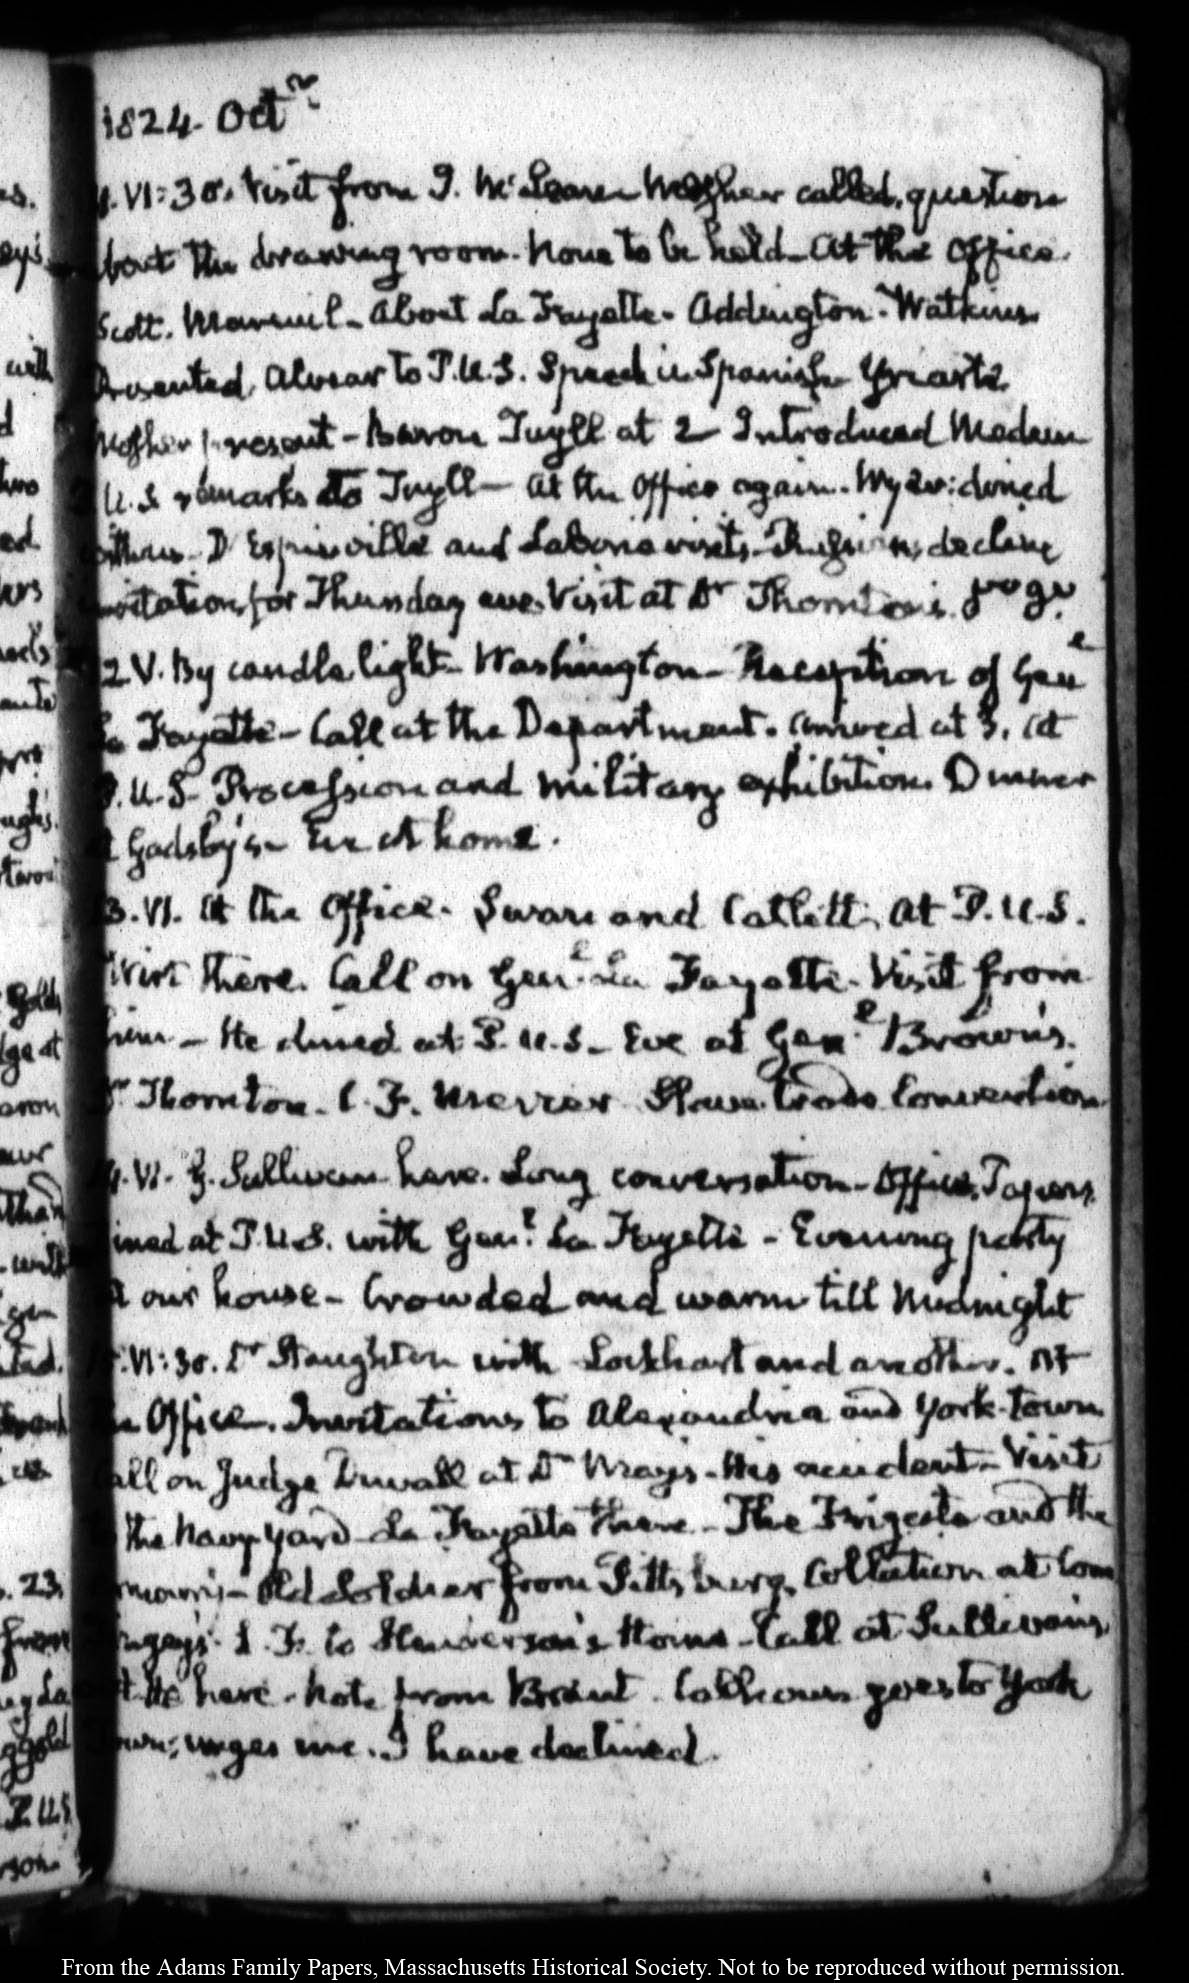 1824. Octr.
VI:30. Visit from J. McLean called, question
about the drawing room. None to be held. At the Office
Scott. Mareuil. About La Fayette. Addington. Watkins.
Presented Alvear to P.U.S. Speech in Spanish. Yriarte
present. Baron Tuyll at 2 Introduced
P.U.S remarks to Tuyll. At the Office again. dined
with us. D'Espinville and Laborie visits. decline
invitation for Thursday eve. Visit at Dr Thornton's.
12 V. By candle light. Washington. Reception of Genl
La Fayette. Call at the Department. arrived at 3. at
P.U.S. Procession and military exhibition. Dinner
at Gadsby's. Eve at home.
13. VI. At the Office. Swan and Catlett. At P.U.S.
there. Call on Genl. La Fayette. Visit from
him. He dined at P.U.S. Eve at Genl Brown's.
Dr Thornton. C. F. Mercer. Slave trade Convention
14. VI. G. Sullivan here. Long conversation. Office. Papers
Dined at P.U.S. with Genl. La Fayette. Evening party
at our house. Crowded and warm till Midnight
15. VI:30. Dr Staughton with Lockhart and another. At
the Office. Invitations to Alexandria and York-town
Call on Judge Duvall at Dr May's. His accident. Visit
to the Navy Yard. La Fayette there. The Frigate and the
Old Soldier from Pittsburg. Collation at Com
Tingey's. to Henderson's Home. Call at Sullivan's
He here. Note from Brent. Calhoun goes to York
Town; urges me. I have declined.
es.
with
d
two
ed
Golds
ge at
aron
than
with
. 23.
from
ggold
P.U.S
rson.
From the Adams Family Papers, Massachusetts Historical Society. Not to be reproduced without permission.